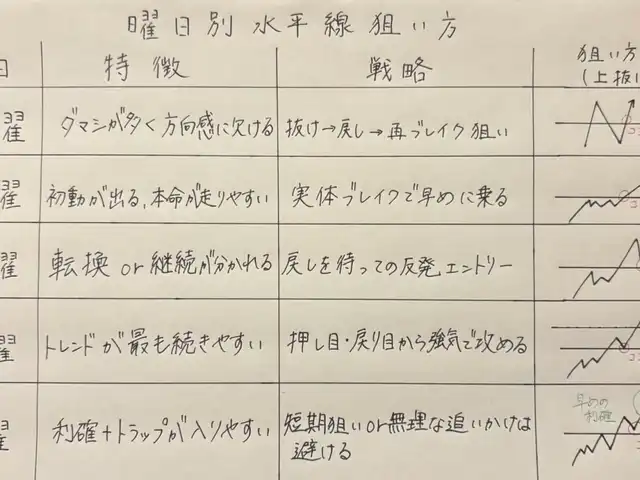 曜日別 水平線 狙い方
日 特徴 戦略 狙い方
(上抜い
曜 ダマシが多く方向感に欠ける 抜け→戻し→再ブレイク狙い
曜 初動が出る、本命が走りやすい 実体ブレイクで早めに乗る
曜 転換or継続が分かれる 戻しを待っての反発エントリー
曜 トレンドが最も続きやすい 押し目・戻り目から強気で攻める
早めの
利確
曜 利確+トラップが入りやすい 短期狙いor無理な追いかけは
避ける